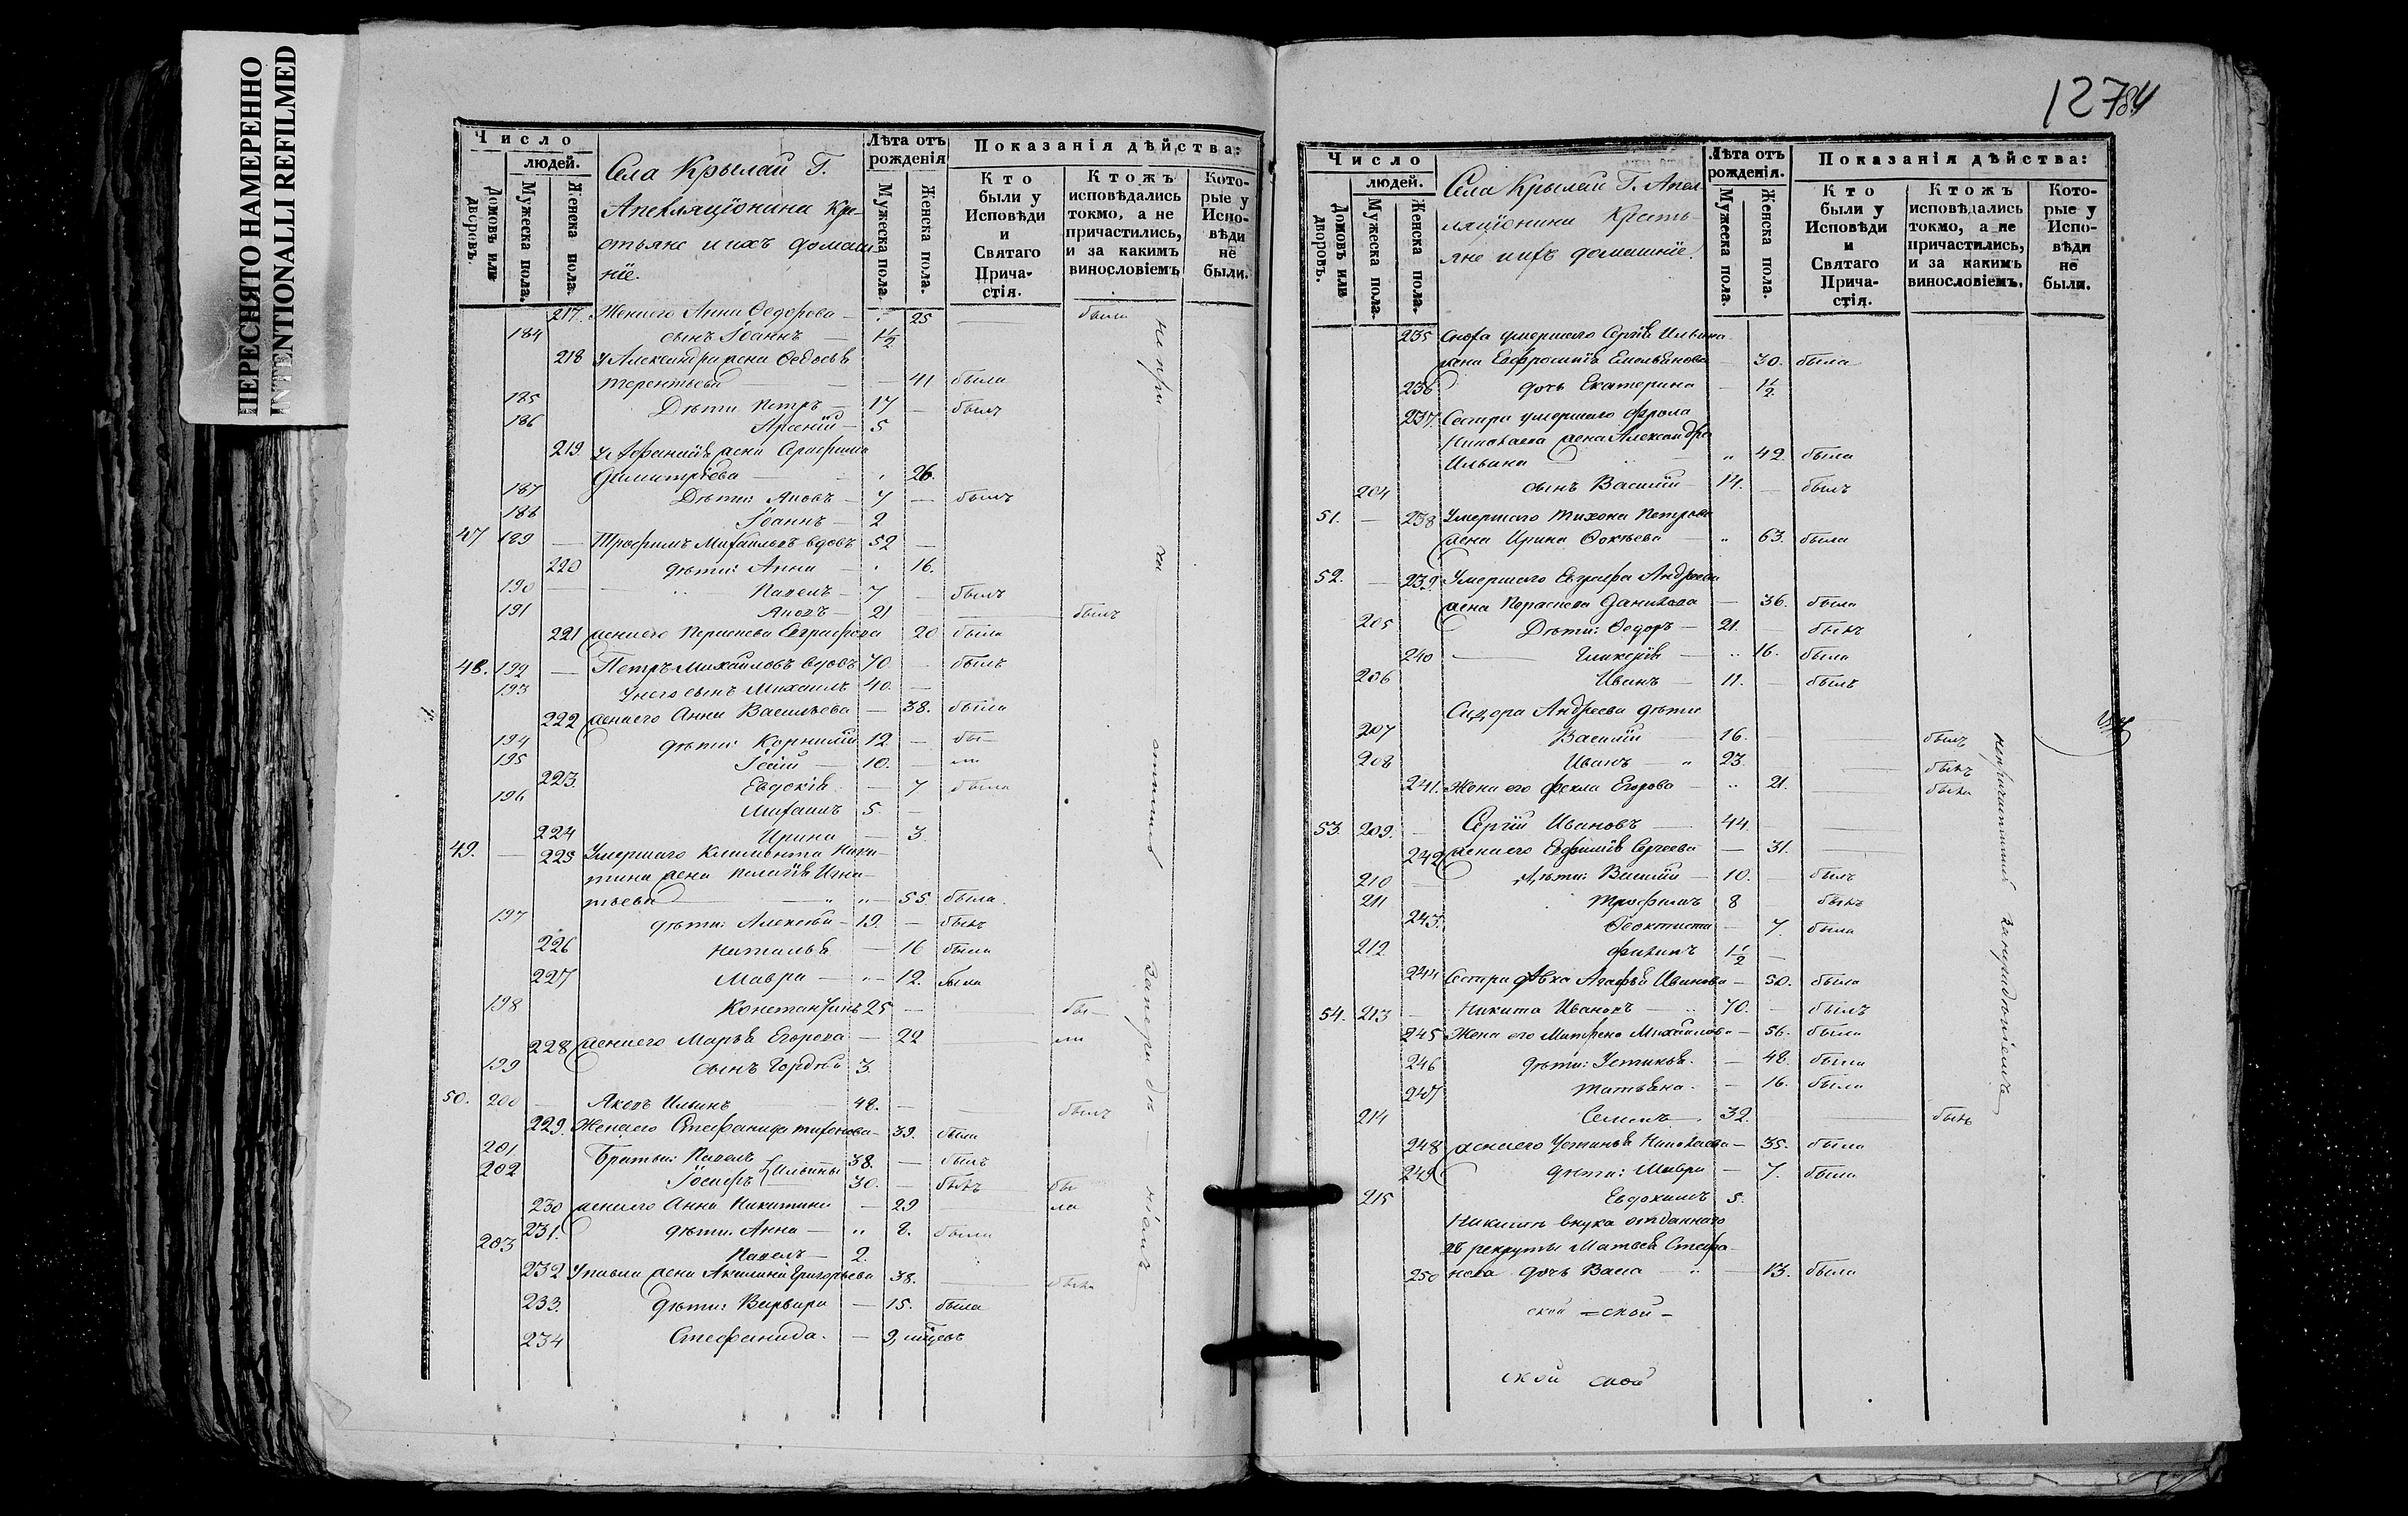 ПЕРЕСНЯТО НАМЕРЕННО
INTENTIONALLI REFILMED
Число
людей.
Домовъ или дворовъ.
Мужеска пола.
Женска пола.
Села Крылай Г.
Апелляціонина Кре-
стьяне и ихъ домаш
ніе.
Лѣта отъ рожденія
Мужеска пола.
Женска пола.
Показанія дѣйства:
Кто были у Исповѣди и Святаго Прича-стія.
Ктожъ исповѣдались токмо, а не причастились, и за какимъ винословіемъ.
Кото-рые у Испо-вѣди не были.
217. Жена его Анна Ѳедорова — 25 — была
184 сынъ Іоаннъ — 1½
218 У Александра жена Ѳедосья
Терентьева — — 41 была
185 Дѣти: Петръ — 17 — былъ
186 Арсеній — 5
219 жена Серафима
Димитріева — 26.
187 Дѣти: Яковъ — 7 — былъ
188 Іоаннъ — 2
47 189 — Трофимъ Михайловъ вдовъ 52 —
220 дѣти: Анна — 16.
190 — Павелъ — 7 — былъ
191 Яковъ — 21 — былъ
221 жена его Параскева Евграфова 20 была
48. 192 — Петръ Михайловъ вдовъ 70 — былъ
193 У него сынъ Михаилъ 40. —
222 жена его Анна Васильева — 38. была
194 дѣти: Корнилій 12 — бы-
195 — 10. — ли
223. Евдокія — 7 была
196 Михаилъ 5. —
224 Ирина — 3.
49. — 225 Умершаго Климента Ники-
тина жена Пелагія Игна-
тьева — 55. была.
197 дѣти: Алексѣй — 19. — былъ
226 Наталья — 16 была
227 Мавра — 12. была
198 Константинъ 25 — бы-
228 жена его Марья Егорова — 22 — ли
199 сынъ Гордѣй 3.
50. 200 — Яковъ Ильинъ 48. — былъ
229. Жена его Стефанида Тихонова — 39. была
201 Братья: Павелъ 38. — былъ
202 Іосифъ } Ильины 30. — былъ
230 жена его Анна Никитина — 29 — бы
ла
231. дѣти: Анна — „ 8. была
203 Павелъ — 2.
232 У Павла жена Акилина Григорьева 38. — была
233. дѣти: Варвара — 15. была
234 Стефанида. — 9, мѣсяцъ
12784
Число
людей.
Домовъ или дворовъ.
Мужеска пола.
Женска пола.
Села Крылай Г. Апел-
ляціонина Кресть-
яне и ихъ домашніе.
Лѣта отъ рожденія.
Мужеска пола.
Женска пола.
Показанія дѣйства:
Кто были у Исповѣди и Святаго Прича-стія.
Ктожъ исповѣдались токмо, а не причастились, и за какимъ винословіемъ.
Кото-рые у Испо-вѣди не были.
235 Сноха умершаго Сергія Ильина
жена Евфросинія Емельянова — 30. была
236 дочь Екатерина — 1½
237. Сестра умершаго Фрола
Николаева жена Александра
Ильина — „ 42. была
204 сынъ Василій — 14. — былъ
51. — 238 Умершаго Тихона Петрова
жена Ирина Фокѣева — „ 63. была
52. — 239. Умершаго Евграфа Андреева
жена Параскева Данилова — 36. была
205 Дѣти: Ѳедоръ — 21. — былъ
240 — Гликерія — „ 16. была
206 Иванъ — 11. — былъ
Сидора Андреева дѣти
207 Василій — 16. — былъ
208 Иванъ — „ 23. — былъ
241. Жена его Фекла Егорова — „ 21. — была
53. 209. — Сергій Ивановъ — 44. —
242 жена его Евфимія Сергеева — 31. —
210 — Дѣти: Василій — 10. — былъ
211 Трофимъ 8 былъ
243. Феоктиста — 7. была
212 Филипъ 1½ —
244 Сестра дѣвка Агафья Иванова — 50. была
54. 213 — Никита Ивановъ — 70. — былъ
245 Жена его Матрена Михайлова — 56. была
246 дѣти: Устинья. — 48. была
247 Татьяна. — 16. была
214 Семенъ — 32. — былъ
248 жена его Устинья Николаева — 35. была
249 дѣти: Мавра — 7. была
215 Евдокимъ 5.
Никиты внука отданнаго
въ рекруты Матвея Стефа-
250 нова дочь Васса — „ — 13. была
ской = ской —
ской ской